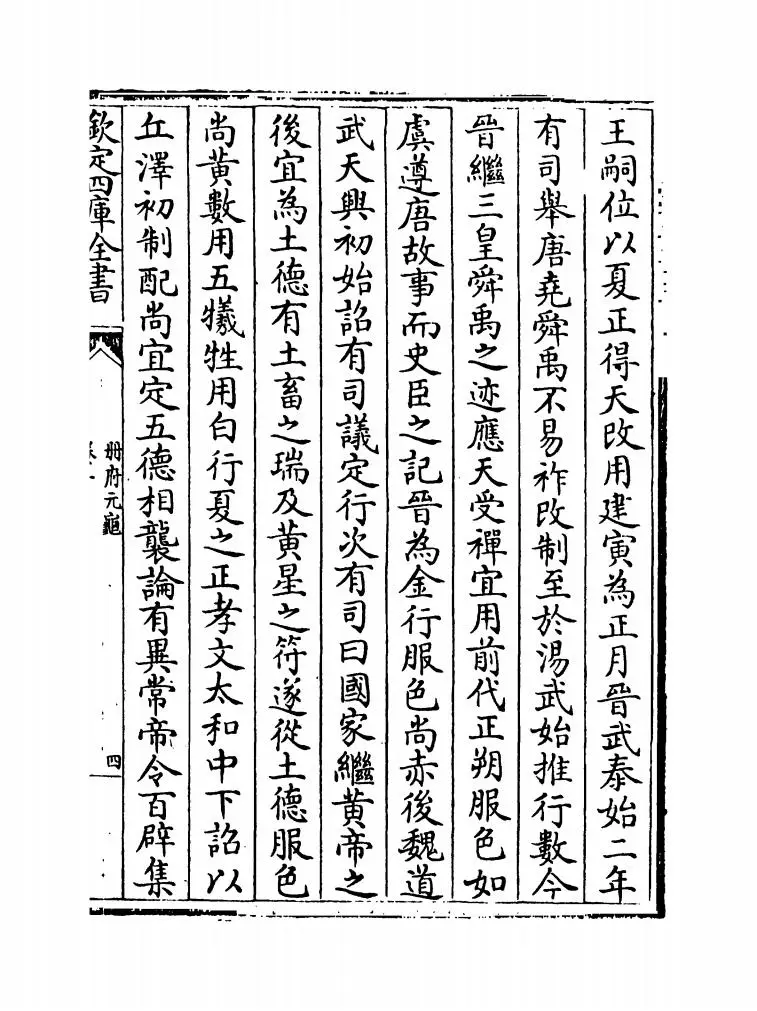 王嗣位以夏正得天改用建寅為正月晉武泰始二年
有司舉唐堯舜禹不易祚改制至於湯武始推行數今
晉繼三皇舜禹之迹應天受禪宜用前代正朔服色如
虞遵唐故事而史臣之記晉為金行服色尚赤後魏道
武天興初始詔有司議定行次有司曰國家繼黃帝之
後宜為土德有土畜之瑞及黃星之符遂從土德服色
尚黃數用五犧牲用白行夏之正孝文太和中下詔以
丘澤初制配尚宜定五德相襲論有異常帝令百辟集
欽定四庫全書
冊府元龜
四